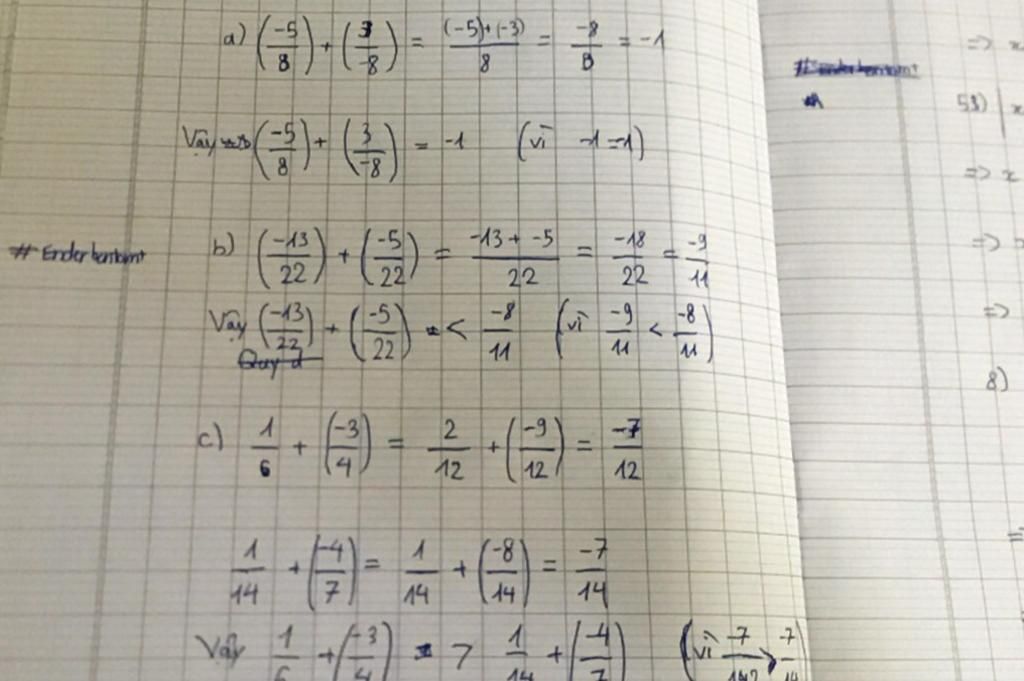 a) (-5/8) + (3/-8) = (-5)+(-3)/8 = -8/8 = -1
Vậy (-5/8) + (3/-8) = -1 (vì -1 = -1)
# Enderbantoint
b) (-13/22) + (-5/22) = -13 + -5/22 = -18/22 = -9/11
Vậy (-13/22) + (-5/22) < -8/11 (vì -9/11 < -8/11)
c) 1/6 + (-3/4) = 2/12 + (-9/12) = -7/12
1/14 + (-4/7) = 1/14 + (-8/14) = -7/14
Vậy 1/6 + (-3/4) > 1/14 + (-4/7) (vì -7/12 > -7/14)
=> x
53) | x
=> x
=>
=>
8)